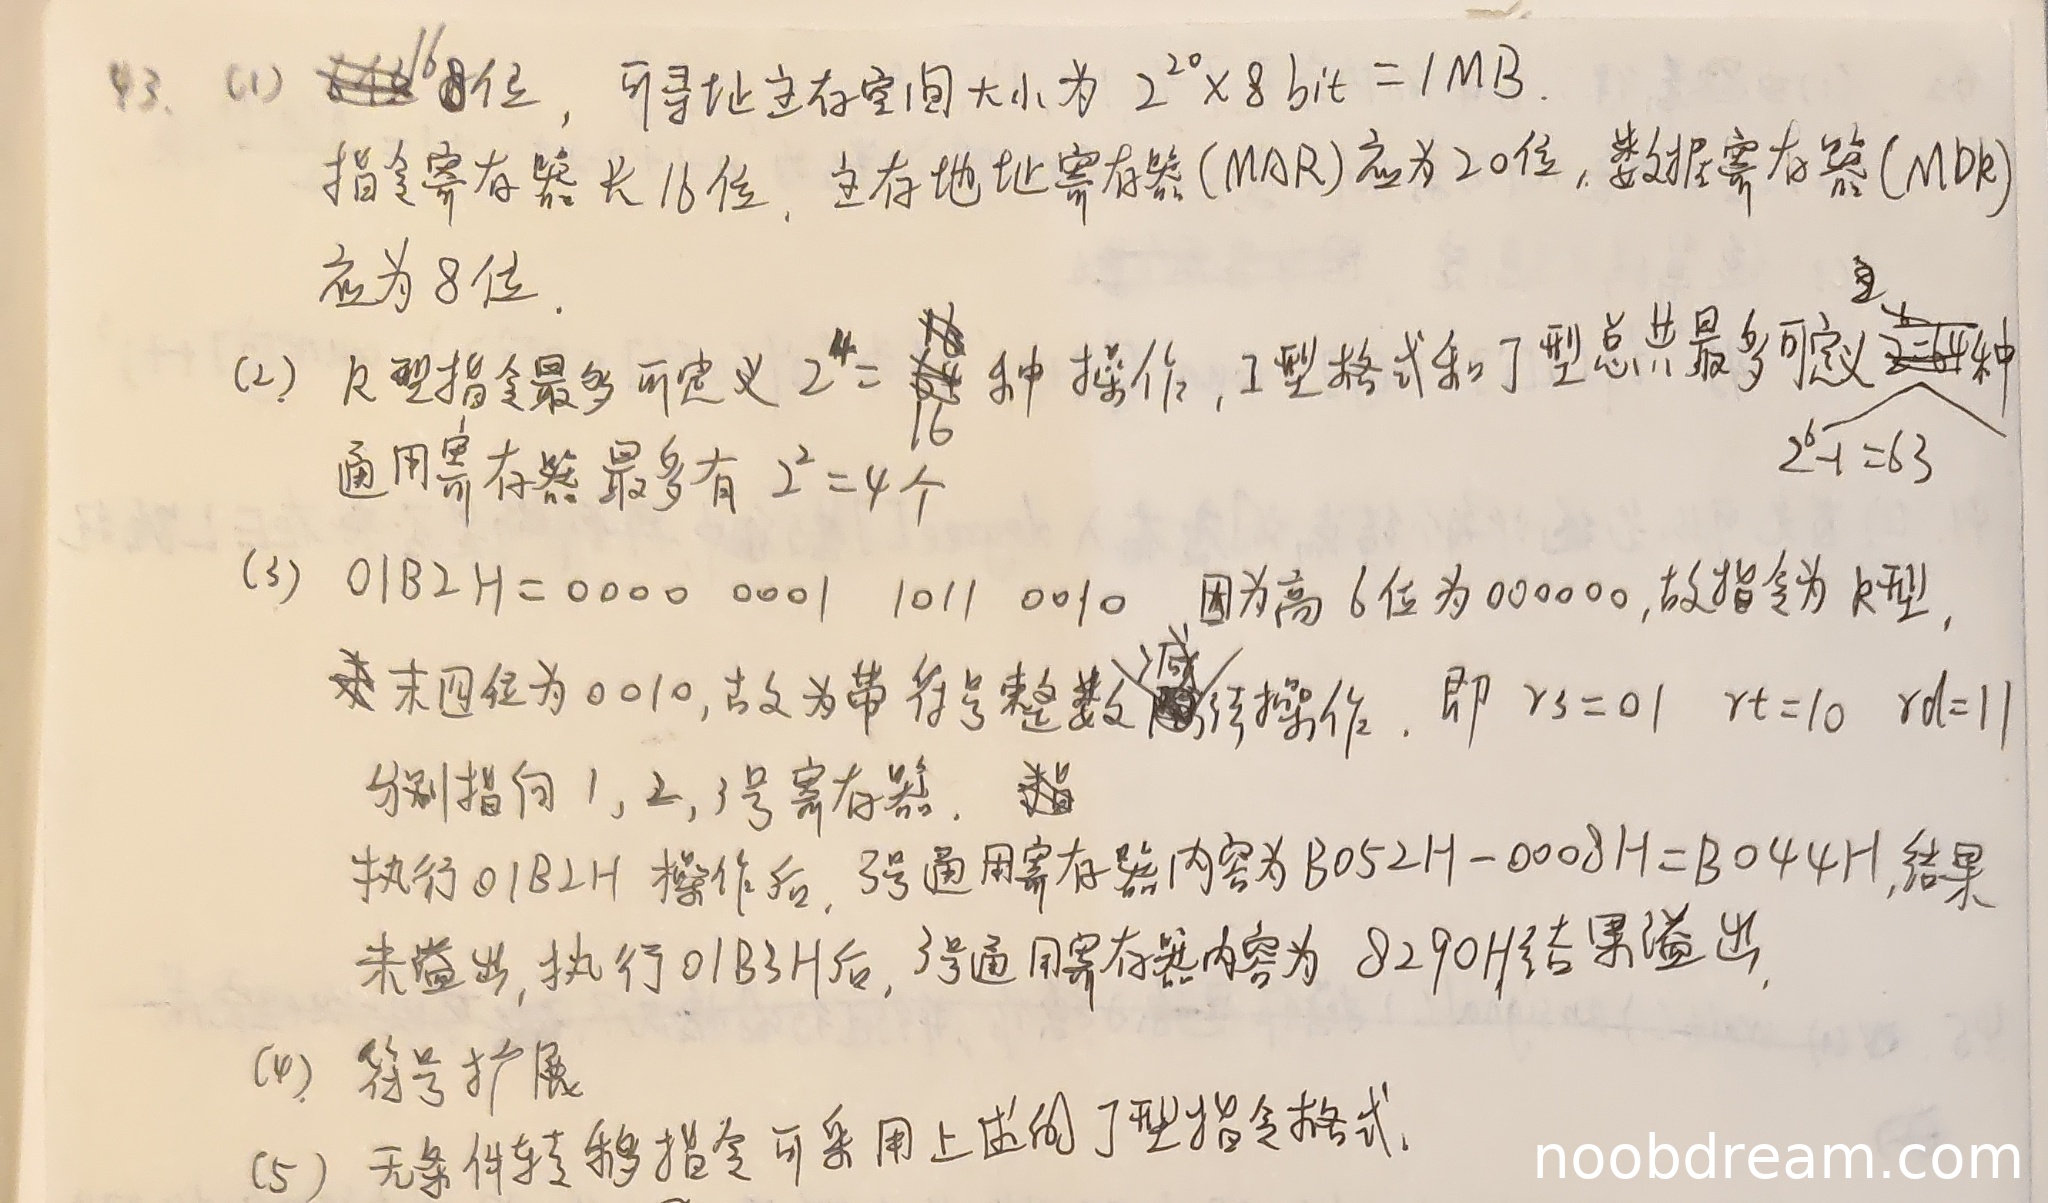 43. (1) 16位，可寻址主存空间大小为 2²⁰×8bit=1MB.
指令寄存器长16位，主存地址寄存器(MAR)应为20位，数据寄存器(MDR)
应为8位.
(2) R型指令最多可定义 2⁴= 16 种操作，I型格式和J型总共最多可定义 2⁶-1=63 种
通用寄存器最多有 2²=4个
(3) 01B2H=0000 0001 1011 0010 因为高6位为000000,故指令为R型，
末四位为0010,故为带符号整数减法操作. 即 rs=01 rt=10 rd=11
分别指向 1, 2, 3号寄存器.
执行01B2H 操作后，3号通用寄存器内容为B052H-0008H=B044H,结果
未溢出,执行01B3H后,3号通用寄存器内容为 8290H结果溢出,
(4) 符号扩展
(5) 无条件转移指令可采用上述的J型指令格式.
noobdream.com